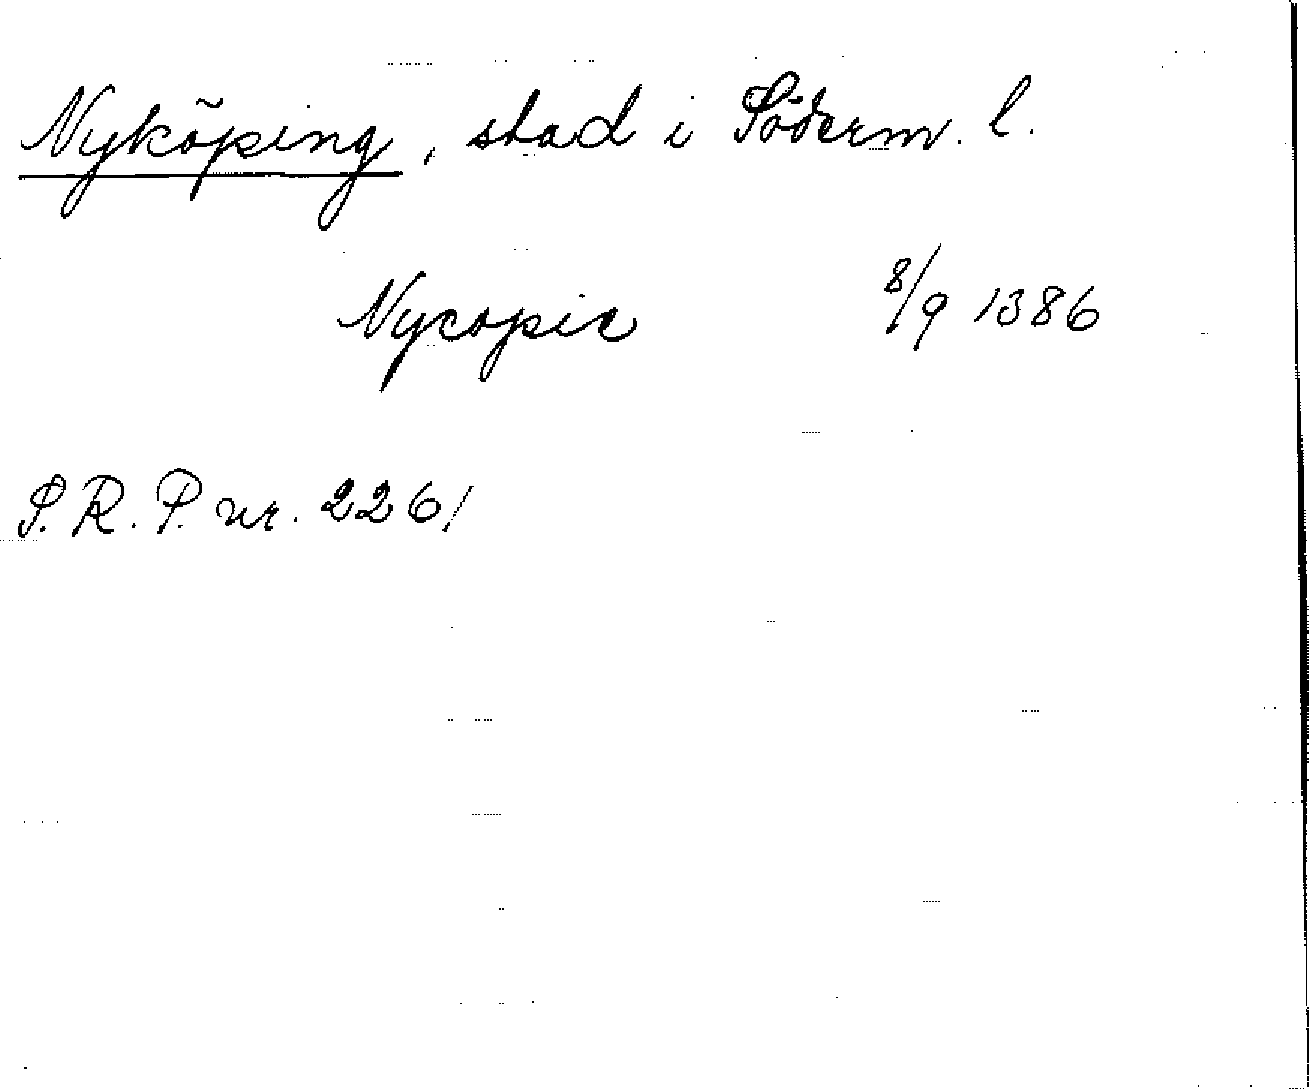 Nyköping, stad i Söderm. l.
Nycopie 8/9 1386
S. R. P. nr. 2261